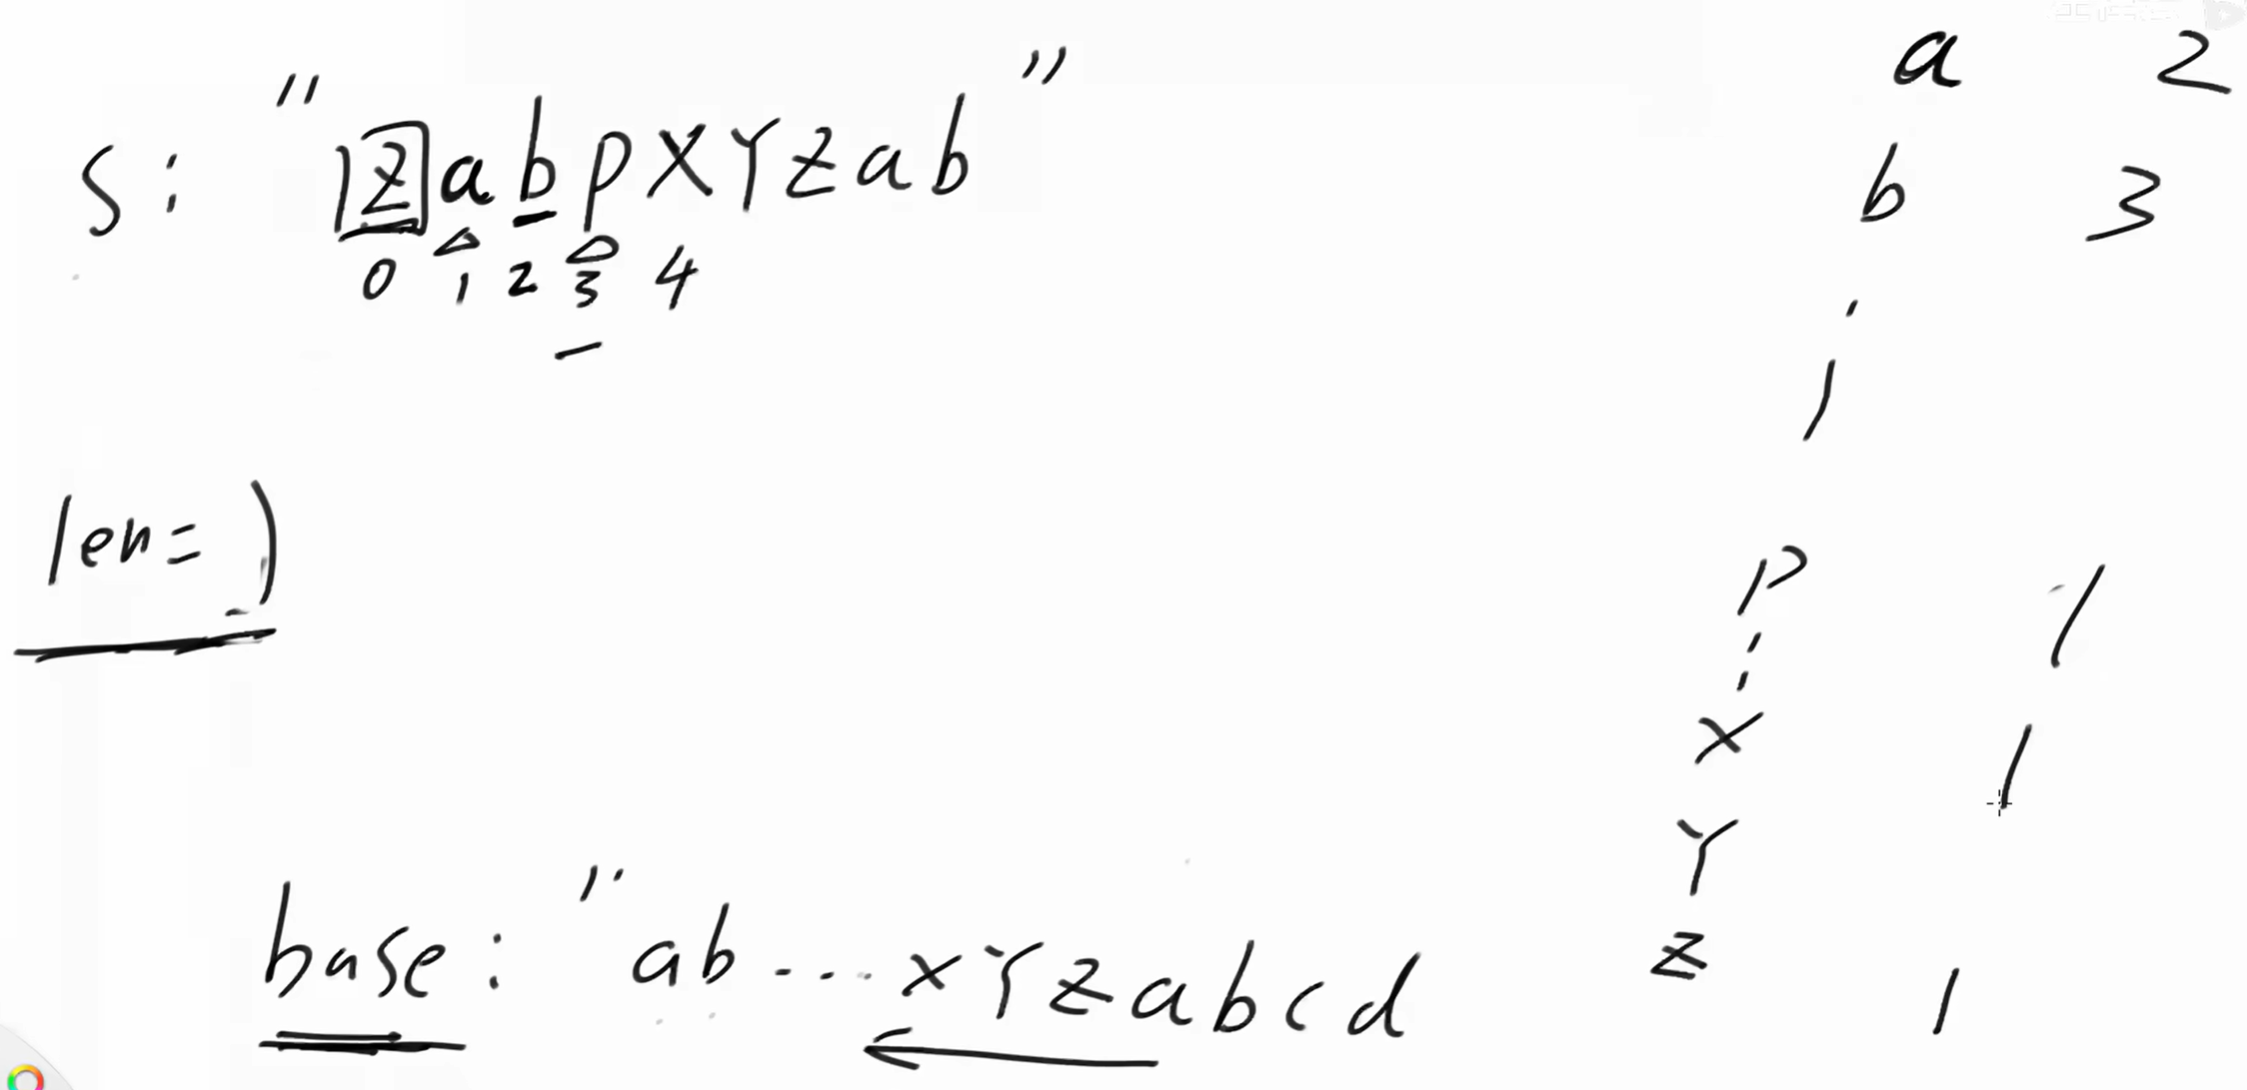 s: "zabpXYzab"
0 1 2 3 4
len=1
base: "ab...xYzabcd
a 2
b 3
p 1
x 1
Y
z 1